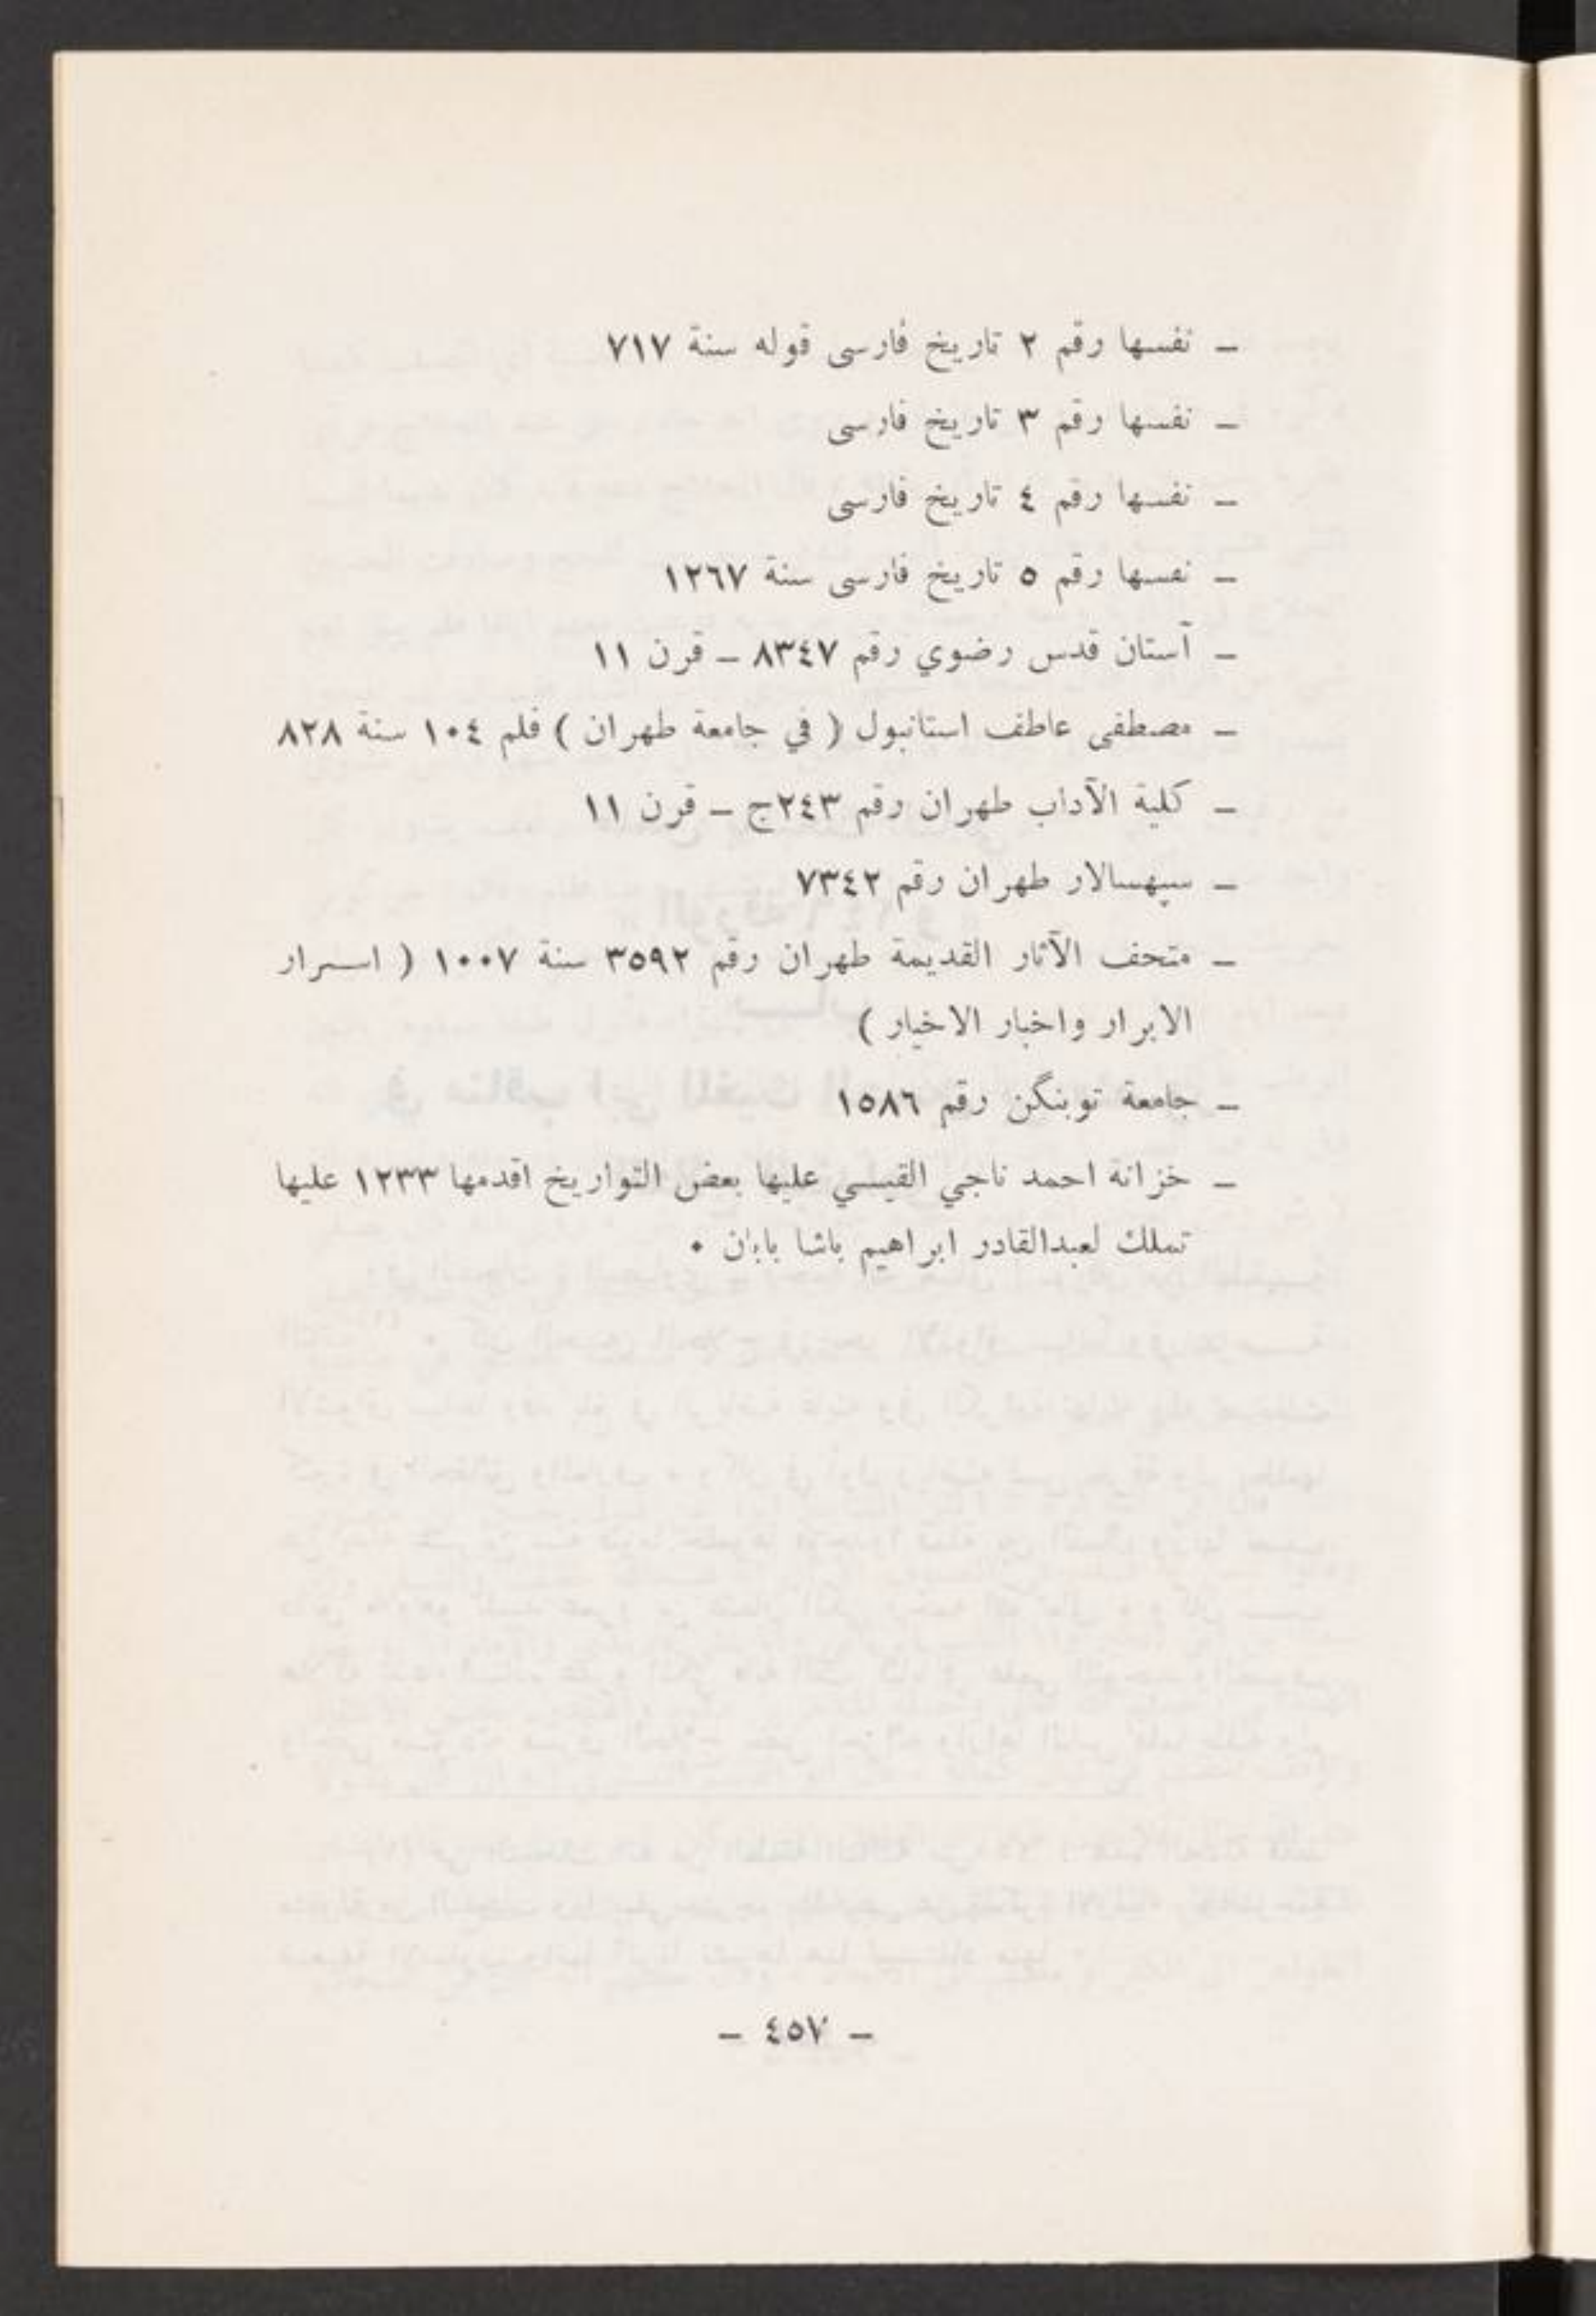 ـ نفسها رقم ٢ تاريخ فارسى قوله سنة ٧١٧
ـ نفسها رقم ٣ تاريخ فارسى
ـ نفسها رقم ٤ تاريخ فارسى
ـ نفسها رقم ٥ تاريخ فارسى سنة ١٢٦٧
ـ آستان قدس رضوي رقم ٨٣٤٧ ـ قرن ١١
ـ مصطفى عاطف استانبول ( في جامعة طهران ) فلم ١٠٤ سنة ٨٢٨
ـ كلية الآداب طهران رقم ٢٤٣ج ـ قرن ١١
ـ سپهسالار طهران رقم ٧٣٤٢
ـ متحف الآثار القديمة طهران رقم ٣٥٩٢ سنة ١٠٠٧ ( اسـرار
الابرار واخبار الاخيار )
ـ جامعة توبنگن رقم ١٥٨٦
ـ خزانة احمد ناجي القيسي عليها بعض التواريخ اقدمها ١٢٣٣ عليها
تملك لعبدالقادر ابراهيم باشا بابان ٠
ـ ٤٥٧ ـ